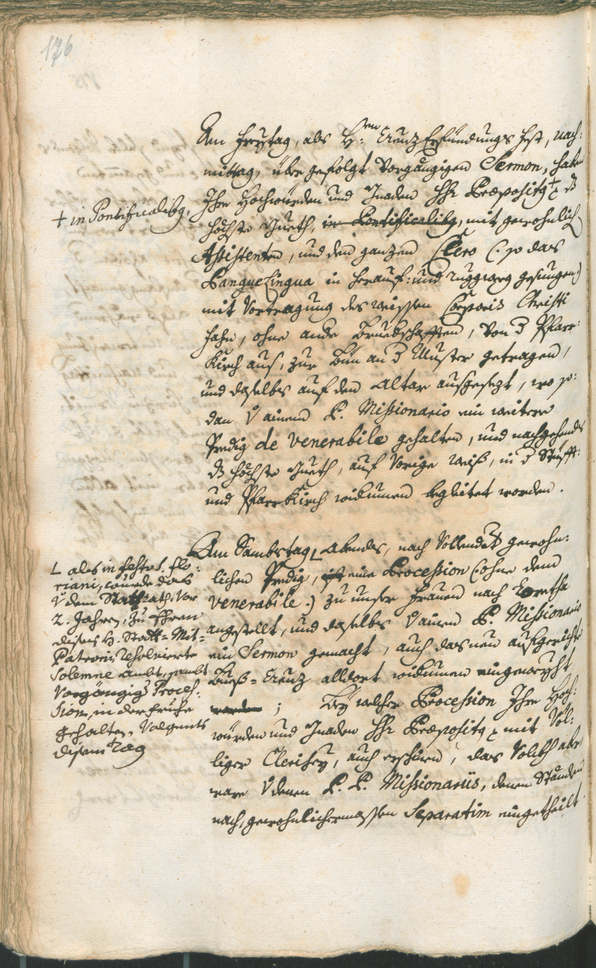 176
Am Freytag, als H: Creuz Erfindungs Fest, nach-
mittag, über gefolgt Vorgängigen Sermon, haben
Ihro Hochwürden und Gnaden HH: Præpositg + d
höchste Gueth, in Pontificalibg, mit gewohnlich
Assistenten, und den ganzen Clero (: so das
Pange Lingua in herauf: und ruggweg gesungen:)
mit Vortragung des weissen Corporis Christi
fahn, ohne andere Bruderschafften, Von d Pfarr-
Kirch aus, zur an d Muster getragen,
und daselbst auf den Altar ausgesezt, wo so-
dan V ainem P. Missionario ein weitere
Predig de Venerabile gehalten, und nachgehends
ds höchste Gueth, auf Vorige weiß, in d Stifft-
und PfarrKirch widumen begleitet worden.
+ in Pontificalibg,
Am Sambstag L Abendes, nach Vollendet gewohn-
lichen Predig, ist eine Procession (: ohne dem
Venerabile :) zu unser Frauen nach Loretha
angestellt, und daselbst V ainem P. Missionario
ein Sermon gemacht, auch das neu aufgerichte
Buß-Creuz alldort widumen eingeweyht
worden; Bey welcher Procession Ihro Hoch-
würden und Gnaden HH: Præpositg mit Völ-
liger Clerisey, auch erschinen, das Volckh aber
ware V denen P. P. Missionariis, denen Ständen
nach, gewohnlichermassen Separatim eingetheilt
L als in festo S. Flo-
riani, wurde das
V dem StattRath, Vor
2. Jahren, zu Ehren
dises H. Statt-Mit-
Patroni Verlobte
Solenne Ambt, sambt
Vorgängig Proces-
sion, in der Frühe
gehalten. Volgents
disem Tag